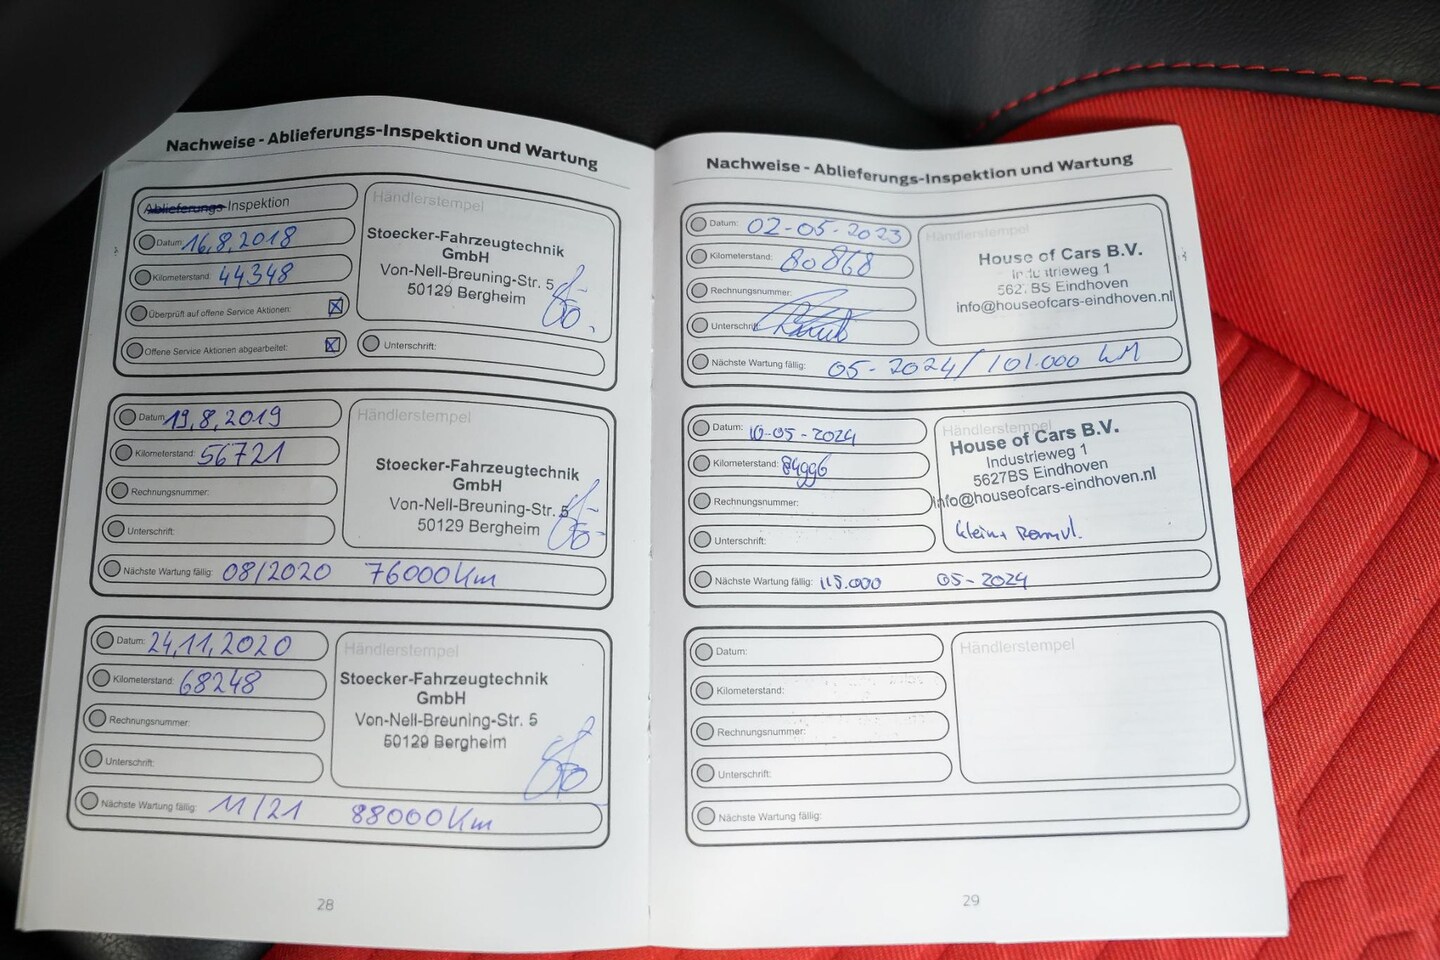 Nachweise - Ablieferungs-Inspektion und Wartung
Ablieferungs-Inspektion
Datum: 16,8,2018
Kilometerstand: 44348
Überprüft auf offene Service Aktionen: ☒
Offene Service Aktionen abgearbeitet: ☒
Händlerstempel
Stoecker-Fahrzeugtechnik
GmbH
Von-Nell-Breuning-Str. 5
50129 Bergheim
Unterschrift:
Datum: 19,8,2019
Kilometerstand: 56721
Rechnungsnummer:
Unterschrift:
Händlerstempel
Stoecker-Fahrzeugtechnik
GmbH
Von-Nell-Breuning-Str. 5
50129 Bergheim
Nächste Wartung fällig: 08/2020 76000 Km
Datum: 24,11,2020
Kilometerstand: 68248
Rechnungsnummer:
Unterschrift:
Händlerstempel
Stoecker-Fahrzeugtechnik
GmbH
Von-Nell-Breuning-Str. 5
50129 Bergheim
Nächste Wartung fällig: 11/21 88000 Km
28
Nachweise - Ablieferungs-Inspektion und Wartung
Datum: 02-05-2023
Kilometerstand: 80868
Rechnungsnummer:
Unterschrift:
Händlerstempel
House of Cars B.V.
Industrieweg 1
5627 BS Eindhoven
info@houseofcars-eindhoven.nl
Nächste Wartung fällig: 05-2024/101.000 KM
Datum: 10-05-2024
Kilometerstand: 84996
Rechnungsnummer:
Unterschrift:
Händlerstempel
House of Cars B.V.
Industrieweg 1
5627BS Eindhoven
info@houseofcars-eindhoven.nl
Nächste Wartung fällig: 115.000 05-2024
Datum:
Kilometerstand:
Rechnungsnummer:
Unterschrift:
Händlerstempel
Nächste Wartung fällig:
29